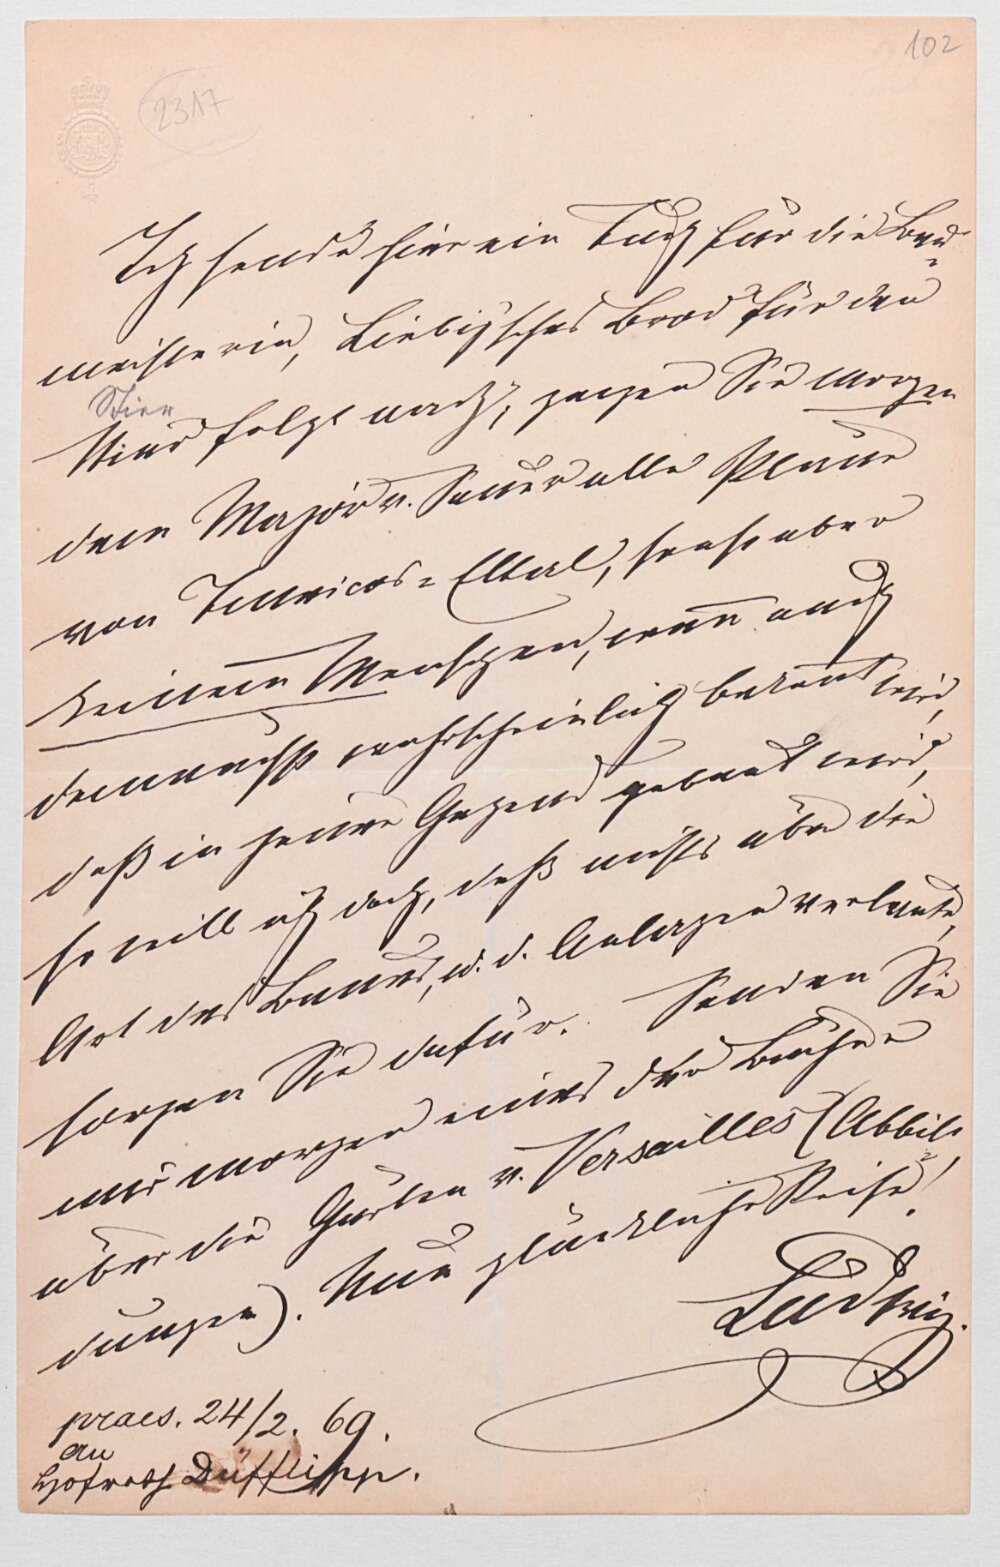 102
2317
Ich sende hier ein Tuch für die Bau-
meisterin, Liebig'sches Brod für den
Stier
Stier folgt nach, zeigen Sie morgen
dem Major v. Sauer alle Pläne
von Tmeicos-Ettal, sonst aber
keinem Menschen, wenn auch
demnächst wahrscheinlich bekannt wird,
daß in jener Gegend gebaut wird,
so will ich doch, daß nichts über die
Art des Baues, u. d. Anlagen verlaute,
sorgen Sie dafür. Senden Sie
mir morgen eines der Bücher
über die Gärten v. Versailles (Abbil-
dungen). Nun glückliche Reise!
Ludwig.
praes. 24/2. 69.
an
Hofrath Düfflipp.